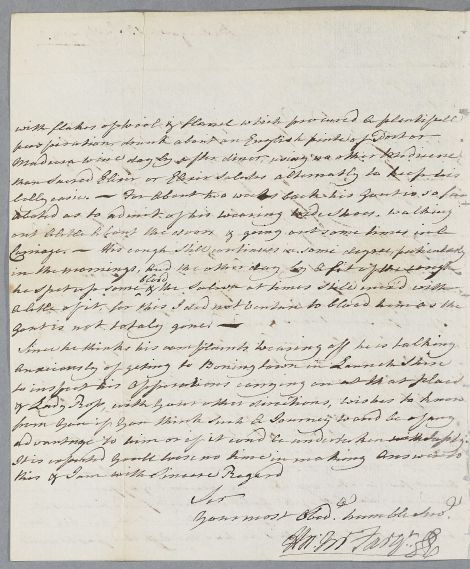 with flakes of wool & flanel which procured a plentifull
perspiration, drunk about an English pinte of Port or
Madeira wine dayly after diner, using no other Medicine
than Sacred Elixir or Elixir Salutis alternatly to keep his
belly easie. — For about two weeks back his Gout is so far
abated as to admit of his wearing wide shoes, walking
out a little about the doors & going out some times in a
Carriage. — His cough still continues in some degree particularly
in the mornings, and the other day by a fit of the cough
he spit up some blood & the Saliva at times still mixed with
a little of it, for this I did not venture to blood him as the
Gout is not totaly gone. —
Since he thinks his complaints wearing off he is talking
anxiously of going to Boning town in Lanrick Shire
to inspect his Operations carrying on at that place
& Lady Ross, with your other directions, wishes to know
from you if you think such a Journey would be of any
advantage to him or if it could be undertaken with safety.
It is expected you'll lose no time in making Answer to
this & I am with Sincere Regard
Sir
Your most Obed.t humble Serv.t